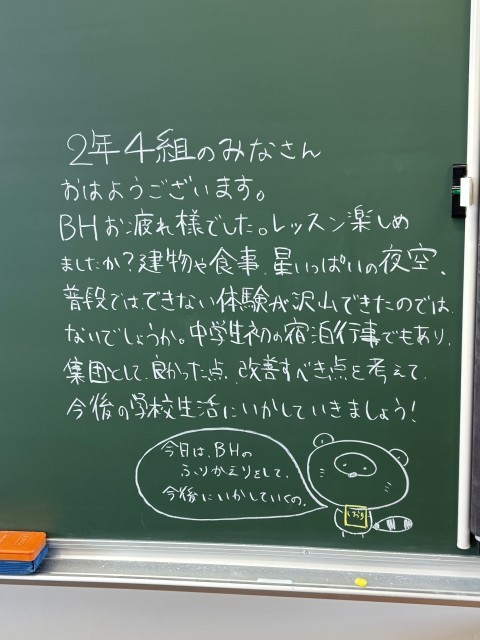 2年4組のみなさん
おはようございます。
BHお疲れ様でした。レッスン楽しめ
ましたか？建物や食事、星いっぱいの夜空、
普段では、できない体験が沢山できたのでは
ないでしょうか。中学生初の宿泊行事でもあり、
集団として、良かった点、改善すべき点を考えて、
今後の学校生活にいかしていきましょう！
今日は、BHの
ふりかえりをして、
今後にいかしていくの。
しおり